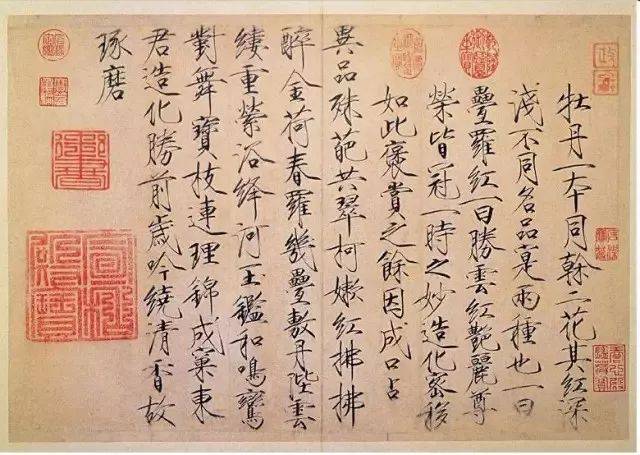 牡丹一本同幹二花其紅深
淺不同名品寔兩種也一曰
疊羅紅一曰勝雲紅艷麗尊
榮皆冠一時之妙造化密移
如此褒賞之餘因成口占
異品殊葩共翠柯嫩紅拂拂
醉金荷春羅幾疊敷丹陛雲
縷重縈浴絳河玉鑑和鳴鸞
對舞寶枝連理錦成窠東
君造化勝前歲吟繞清香故
琢磨